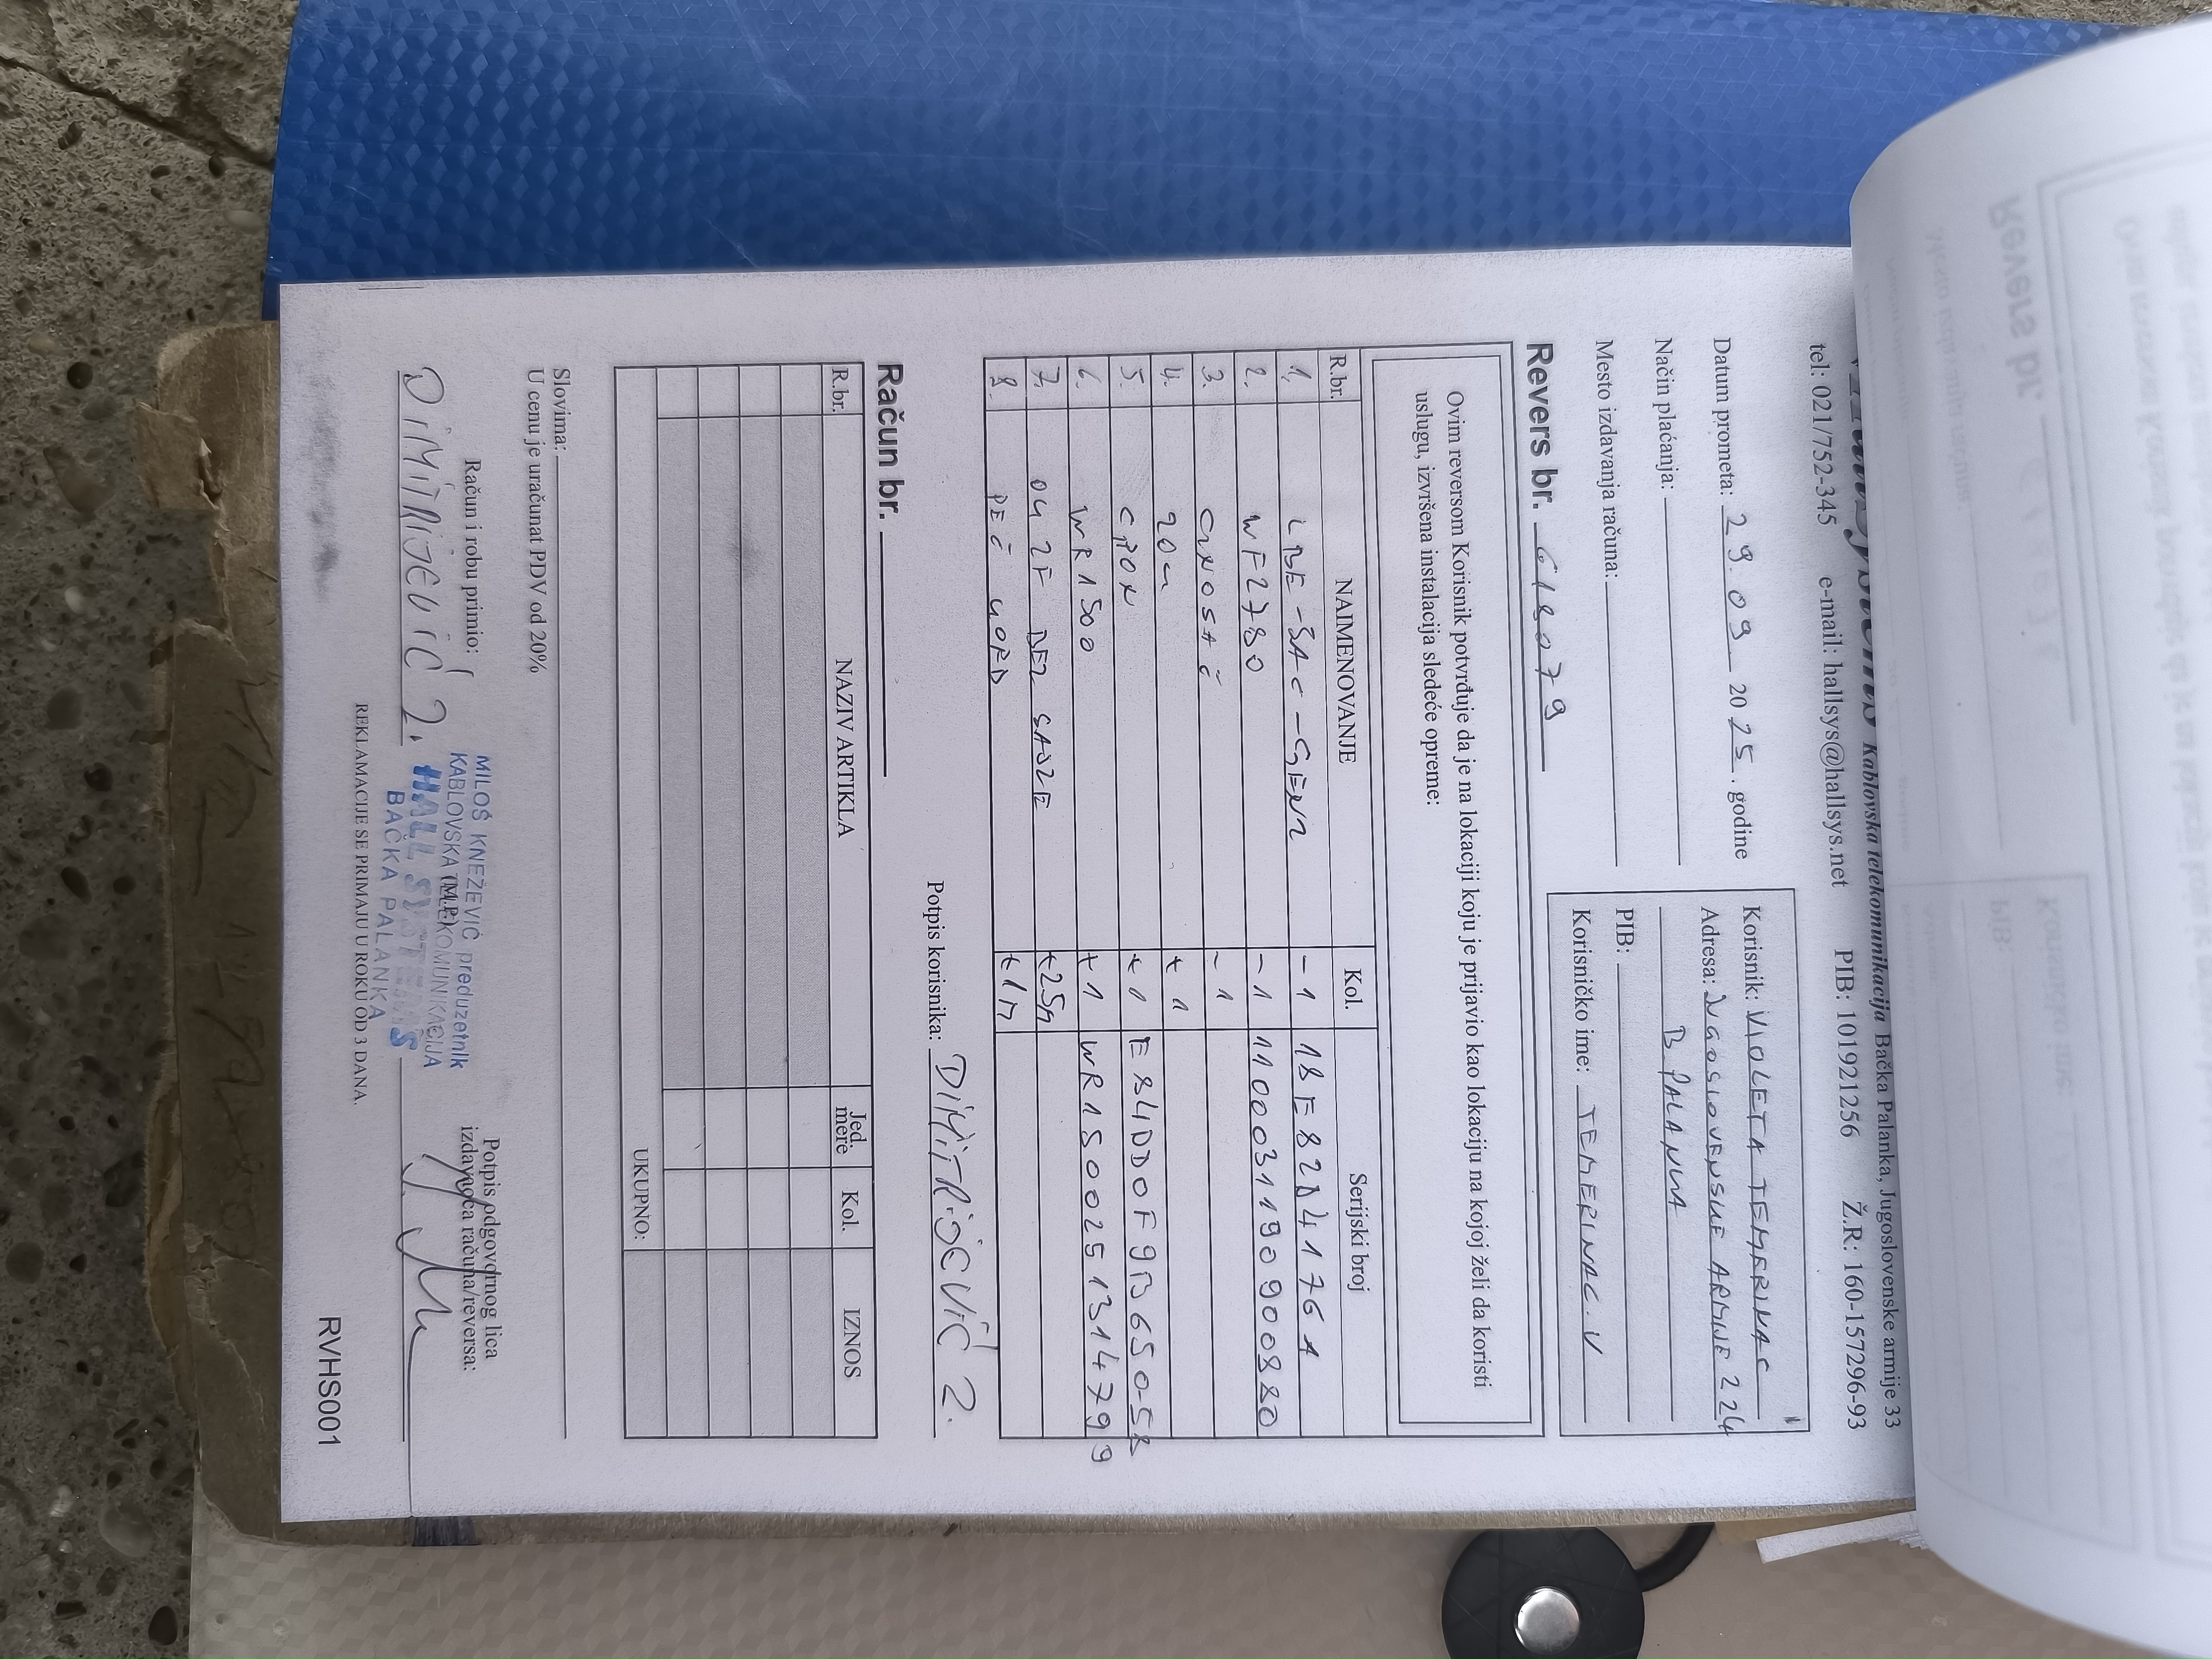 Kablovska telekomunikacija Bačka Palanka, Jugoslovenske armije 33
tel: 021/752-345 e-mail: hallsys@hallsys.net PIB: 101921256 Ž.R: 160-157296-93
Datum prometa: 29.09 2025. godine
Način plaćanja:
Mesto izdavanja računa:
Korisnik: VIOLETA TEMERINAC
Adresa: JUGOSLOVENSKE ARMIJE 224
B. PALANKA
PIB:
Korisničko ime: TEMERINAC.V
Revers br. 618079
Ovim reversom Korisnik potvrđuje da je na lokaciji koju je prijavio kao lokaciju na kojoj želi da koristi
uslugu, izvršena instalacija sledeće opreme:
R.br. NAIMENOVANJE Kol. Serijski broj
1. LBE-5AC-GEN2 -1 18E82D41761
2. WF2780 -1 1100031190900880
3. -1
4. +1
5. +1
6. WR1500 +1 WR1500251314799
7. BEZ +25m
8.
Potpis korisnika: DIMITRIJEVIĆ Z.
Račun br.
R.br. NAZIV ARTIKLA Jed. mere Kol. IZNOS
UKUPNO:
Slovima:
U cenu je uračunat PDV od 20%
Račun i robu primio:
DIMITRIJEVIĆ Z.
MILOŠ KNEŽEVIĆ preduzetnik
KABLOVSKA TELEKOMUNIKACIJA
(M.P.)
HALL SYSTEMS
BAČKA PALANKA
Potpis odgovornog lica
izdavaoca računa/reversa:
REKLAMACIJE SE PRIMAJU U ROKU OD 3 DANA.
RVHS001